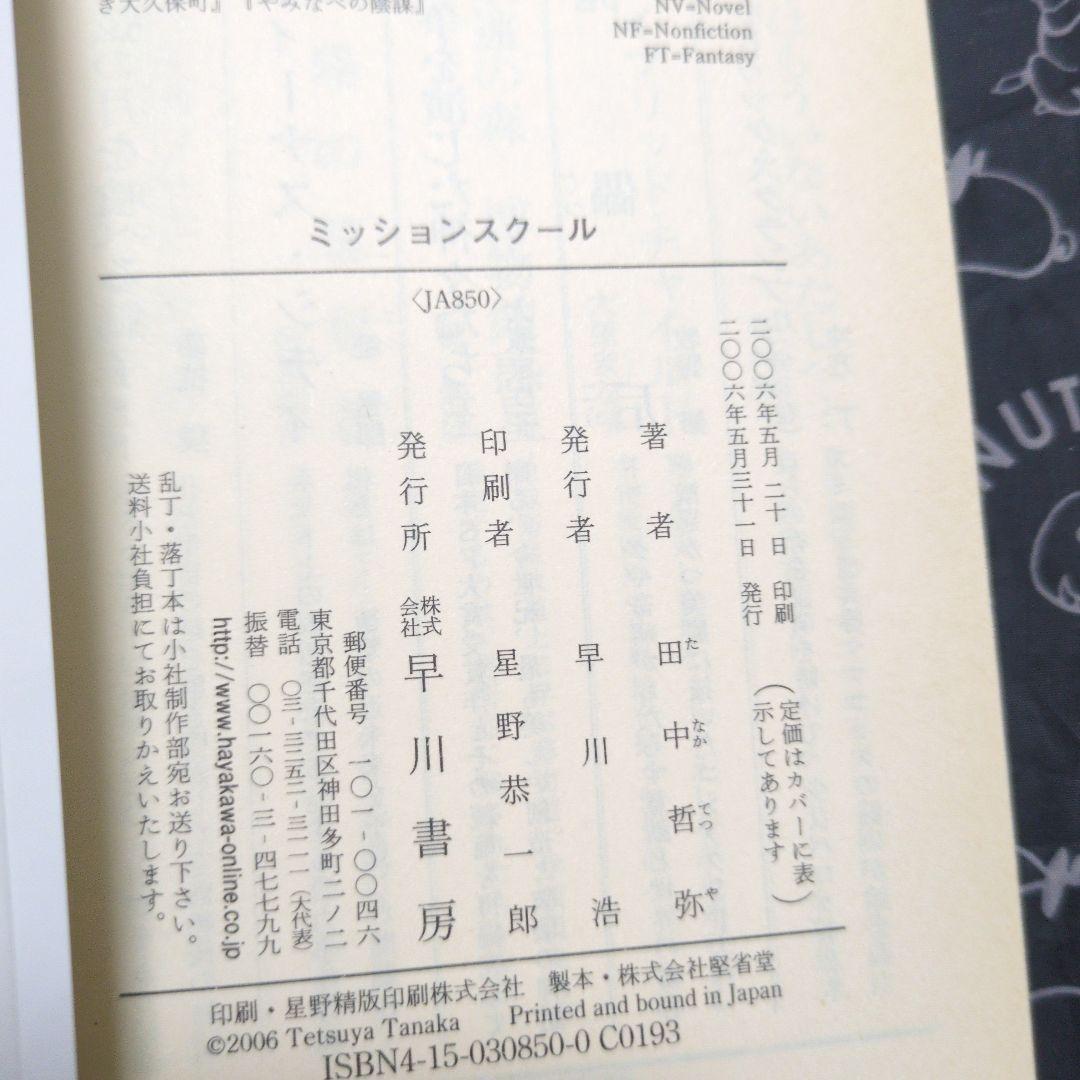 き大久保町』『やみなべの陰謀』
NV=Novel
NF=Nonfiction
FT=Fantasy
ミッションスクール
〈JA850〉
二〇〇六年五月二十日 印刷
二〇〇六年五月三十一日 発行
(定価はカバーに表示してあります)
著者 田中哲弥
たなかてつや
発行者 早川浩
印刷者 星野恭一郎
発行所 株式会社 早川書房
郵便番号 一〇一-〇〇四六
東京都千代田区神田多町二ノ二
電話 〇三-三二五二-三一一一(大代表)
振替 〇〇一六〇-三-四七七九九
http://www.hayakawa-online.co.jp
乱丁・落丁本は小社制作部宛お送り下さい。
送料小社負担にてお取りかえいたします。
印刷・星野精版印刷株式会社 製本・株式会社堅省堂
©2006 Tetsuya Tanaka Printed and bound in Japan
ISBN4-15-030850-0 C0193
NUT